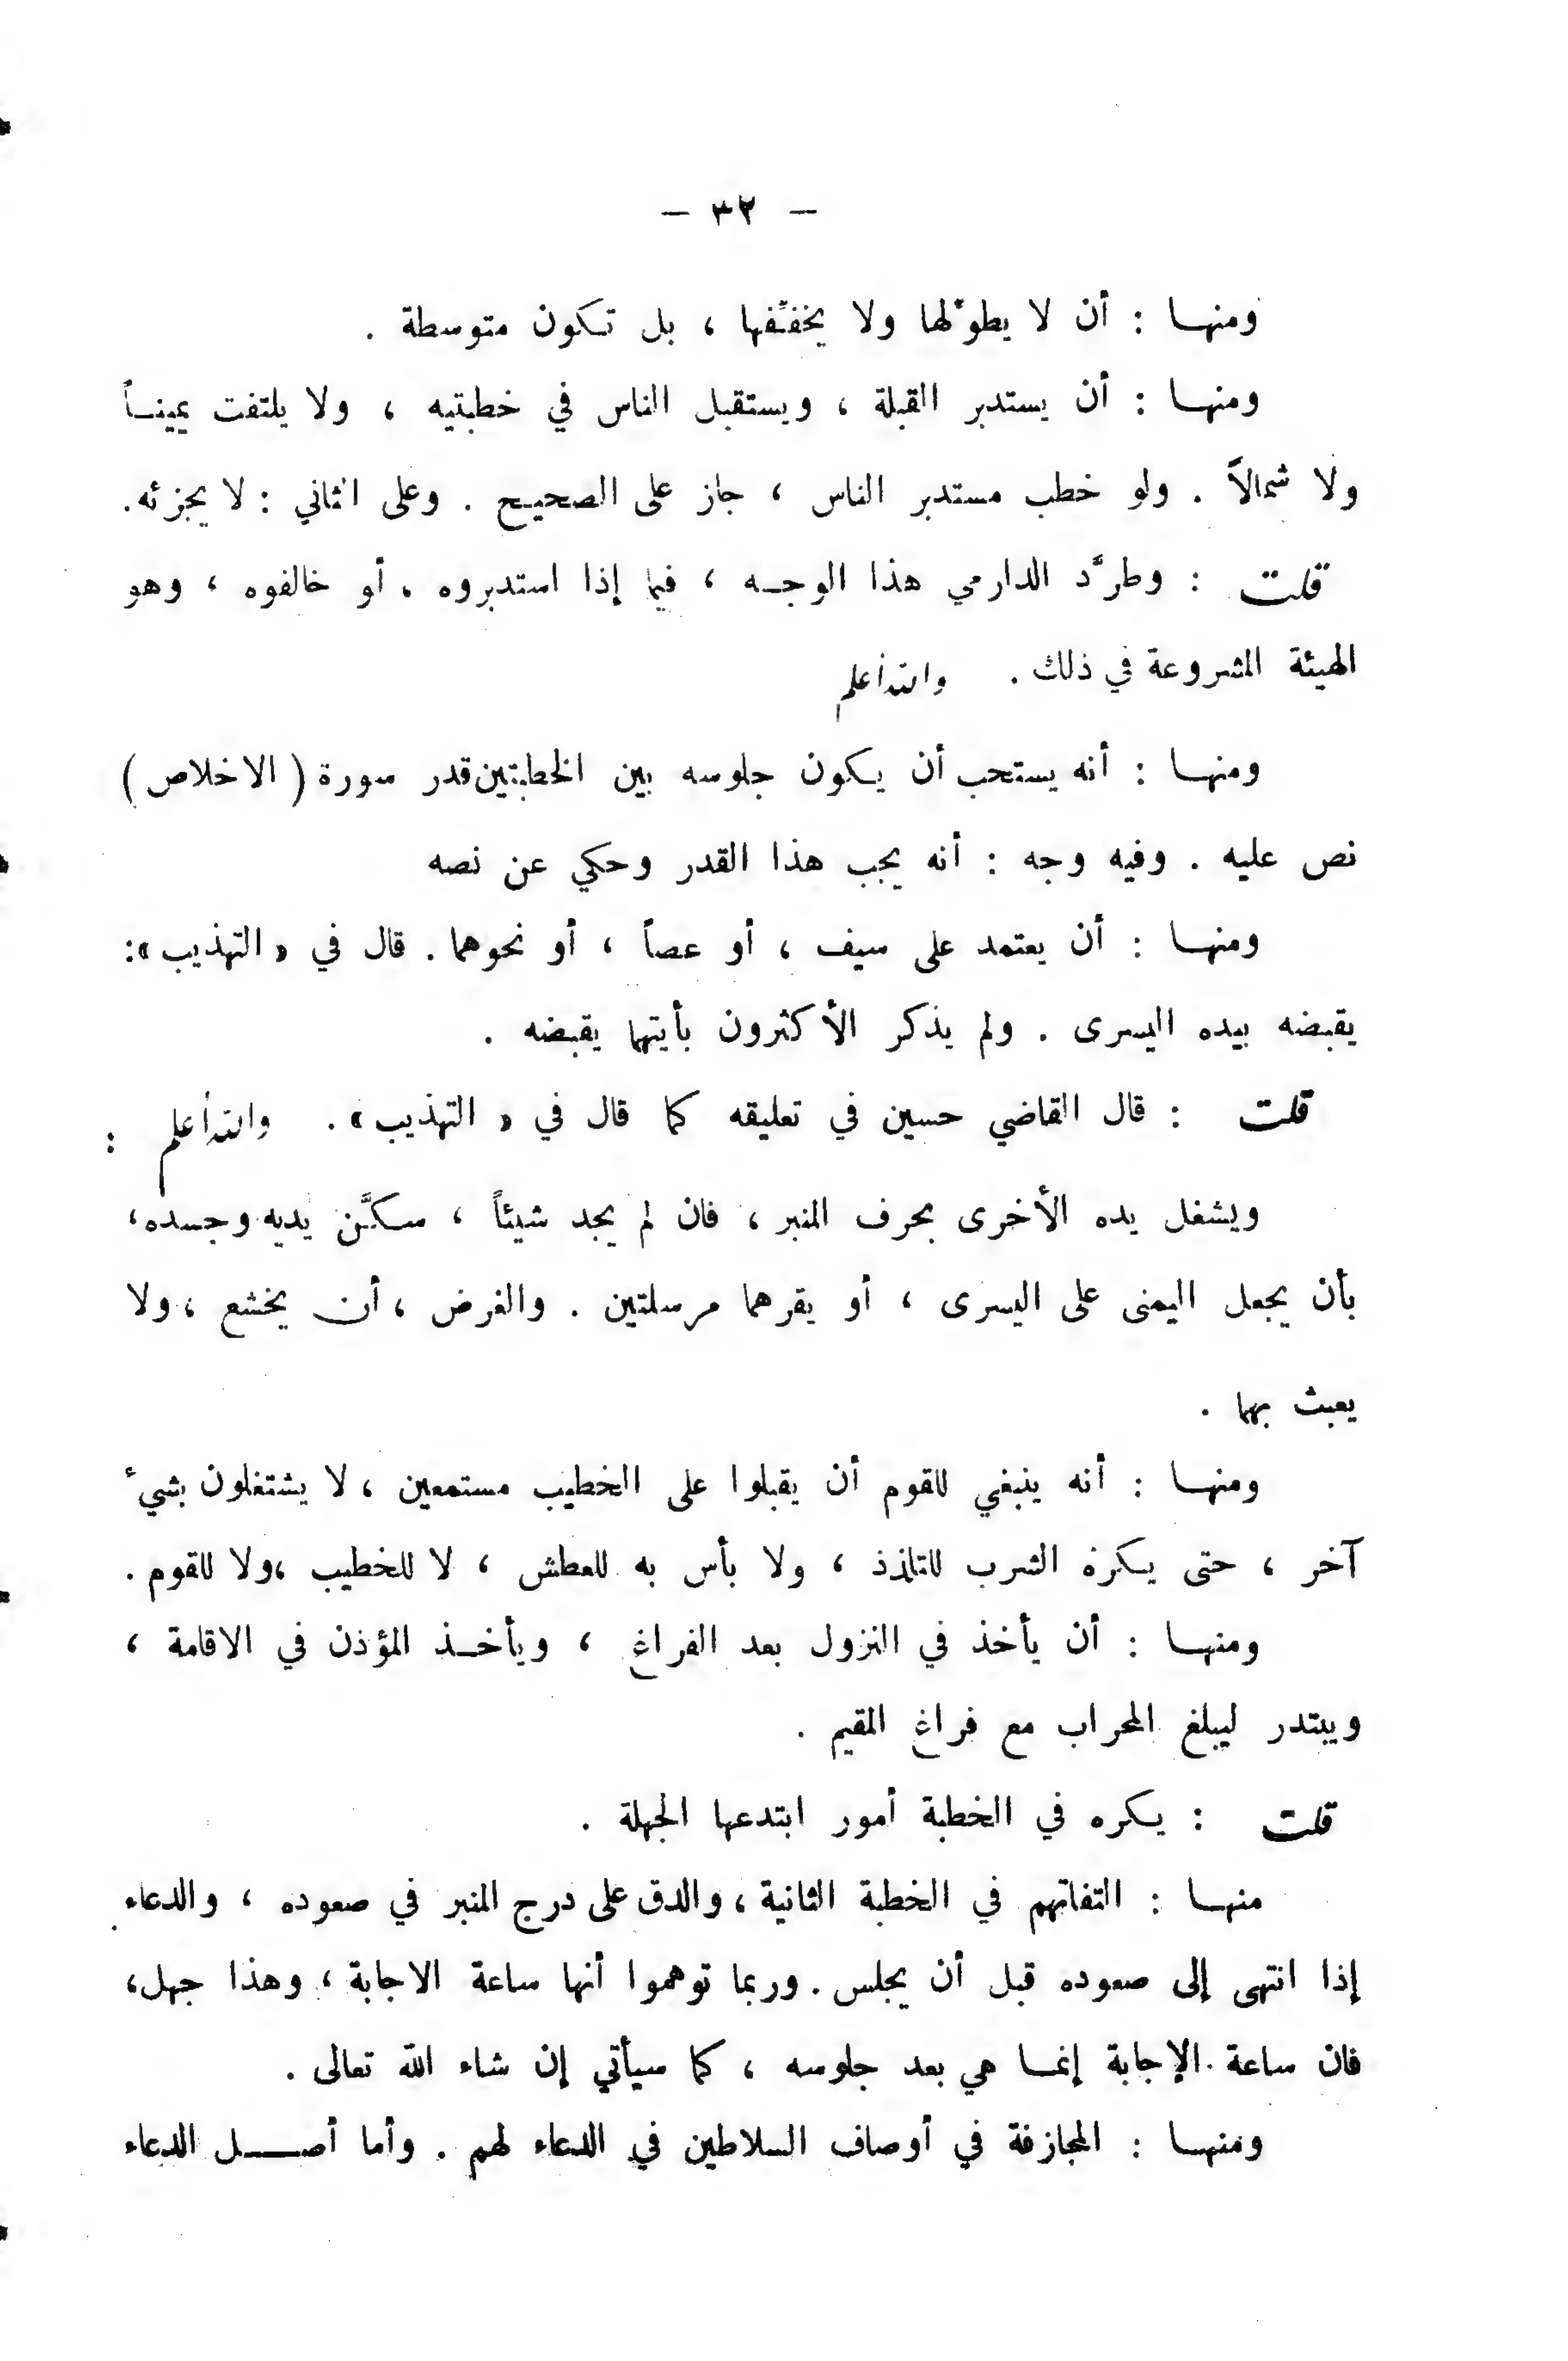 – ٣٢ –
ومنهـا : أن لا يطوّلها ولا يخفّفها ، بل تكون متوسطة .
ومنهـا : أن يستدبر القبلة ، ويستقبل الناس في خطبتيه ، ولا يلتفت يمينـاً
ولا شمالاً . ولو خطب مستدبر الناس ، جاز على الصحيح . وعلى الثاني : لا يجزئه.
قلت : وطرَّد الدارمي هذا الوجـه ، فيما إذا استدبروه ، أو خالفوه ، وهو
الهيئة المشروعة في ذلك . والله أعلم
ومنهـا : أنه يستحب أن يكون جلوسه بين الخطبتين قدر سورة ( الاخلاص )
نص عليه . وفيه وجه : أنه يجب هذا القدر وحكي عن نصه
ومنهـا : أن يعتمد على سيف ، أو عصاً ، أو نحوهما . قال في « التهذيب »:
يقبضه بيده اليسرى . ولم يذكر الأكثرون بأيتهما يقبضه .
قلت : قال القاضي حسين في تعليقه كما قال في « التهذيب » . والله أعلم :
ويشغل يده الأخرى بحرف المنبر ، فان لم يجد شيئاً ، سكَّن يديه وجسده،
بأن يجعل اليمنى على اليسرى ، أو يقرهما مرسلتين . والغرض ، أن يخشع ، ولا
يعبث بهما .
ومنهـا : أنه ينبغي للقوم أن يقبلوا على الخطيب مستمعين ، لا يشتغلون بشيء
آخر ، حتى يكره الشرب للتلذذ ، ولا بأس به للعطش ، لا للخطيب ،ولا للقوم .
ومنهـا : أن يأخذ في النزول بعد الفراغ ، ويأخـذ المؤذن في الاقامة ،
ويبتدر ليبلغ المحراب مع فراغ المقيم .
قلت : يكره في الخطبة أمور ابتدعها الجهلة .
منهـا : التفاتهم في الخطبة الثانية ، والدق على درج المنبر في صعوده ، والدعاء
إذا انتهى إلى صعوده قبل أن يجلس . وربما توهموا أنها ساعة الاجابة ، وهذا جهل،
فان ساعة الإجابة إنمـا هي بعد جلوسه ، كما سيأتي إن شاء الله تعالى .
ومنهـا : المجازفة في أوصاف السلاطين في الدعاء لهم . وأما أصــل الدعاء